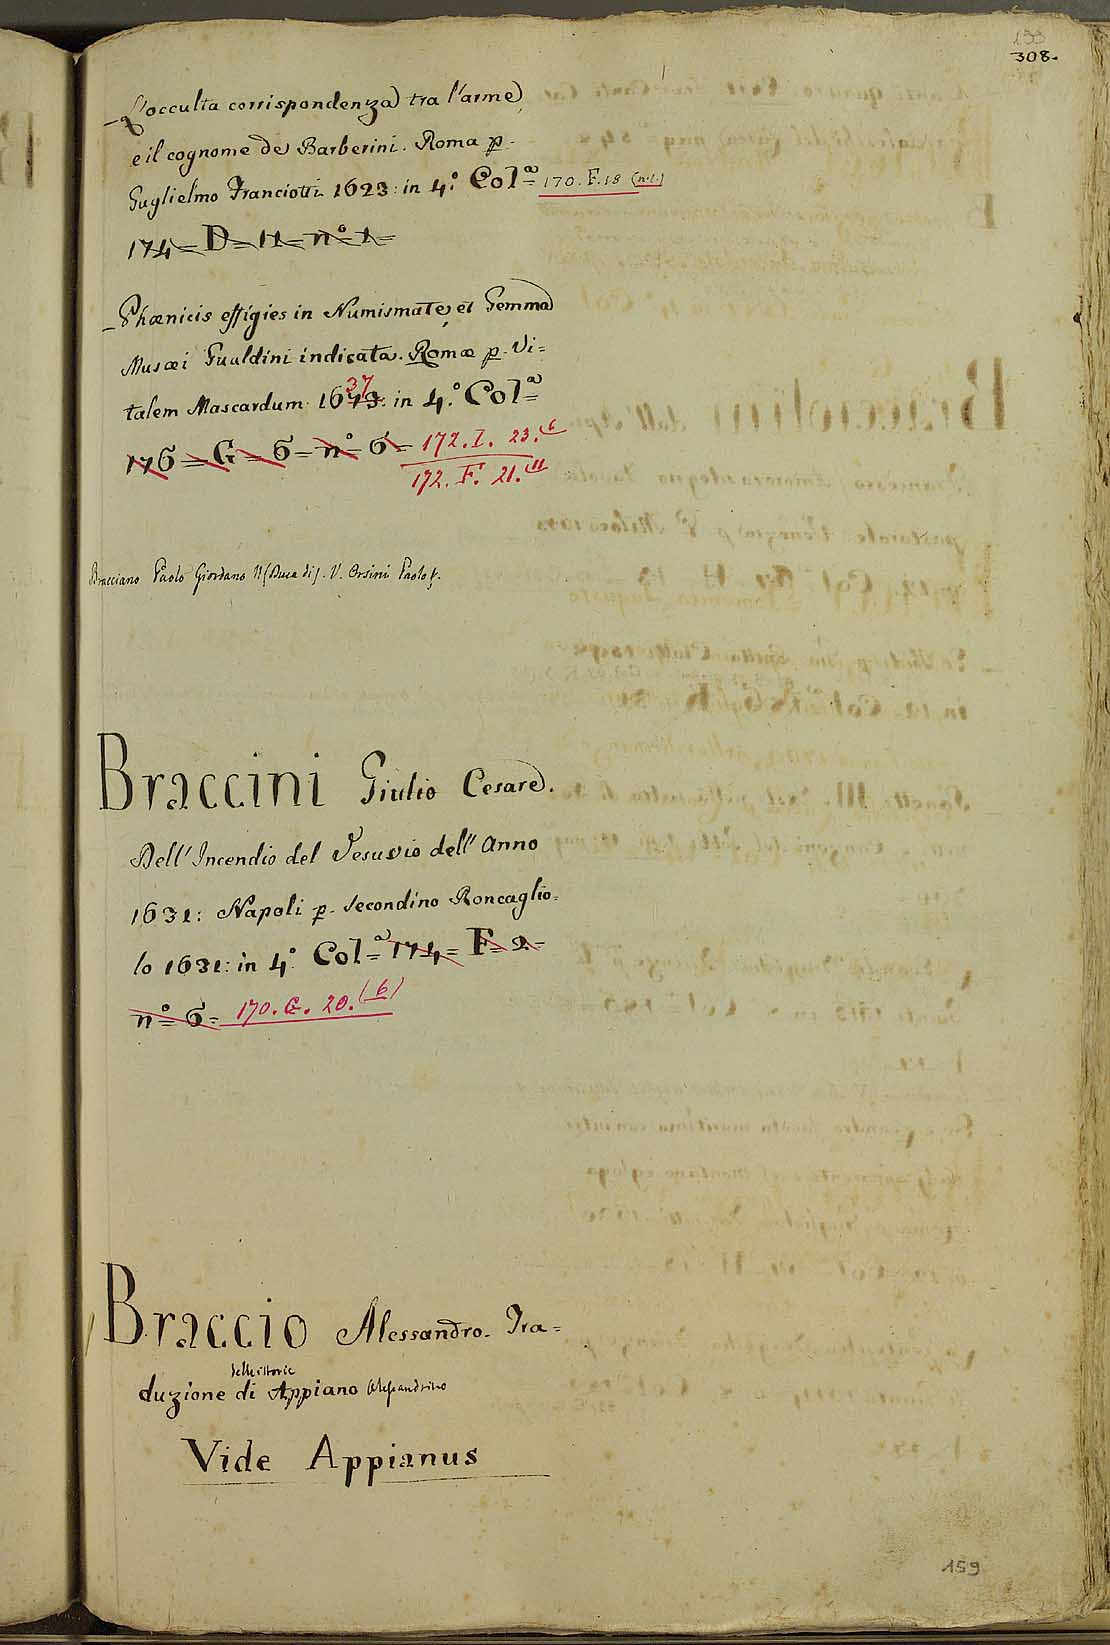 308.
_ L'occulta corrispondenza tra l'arme,
e il cognome de Barberini. Roma p.
Guglielmo Franciotti 1623: in 4.º Colª= 170. F. 18 (n.1.)
174= D= 11= nº 1=
_ Phænicis effigies in Numismate, et Gemma
Musæi Gualdini indicata. Romæ p. Vi=
37
talem Mascardum 1673: in 4.º Colª=
176= G= 6= nº 6= 172. I. 23.(6
172. F. 21.(11
Bracciano Paolo Giordano II (Duca di). V. Orsini Paolo
Braccini Giulio Cesare.
Dell' Incendio del Vesuvio dell' Anno
1631: Napoli p. secondino Roncaglio=
lo 1631: in 4º Colª= 174= F= 2=
nº= 6= 170. G. 20. (6)
Braccio Alessandro. Tra=
delle istorie
duzione di Appiano Alessandrino
Vide Appianus
159